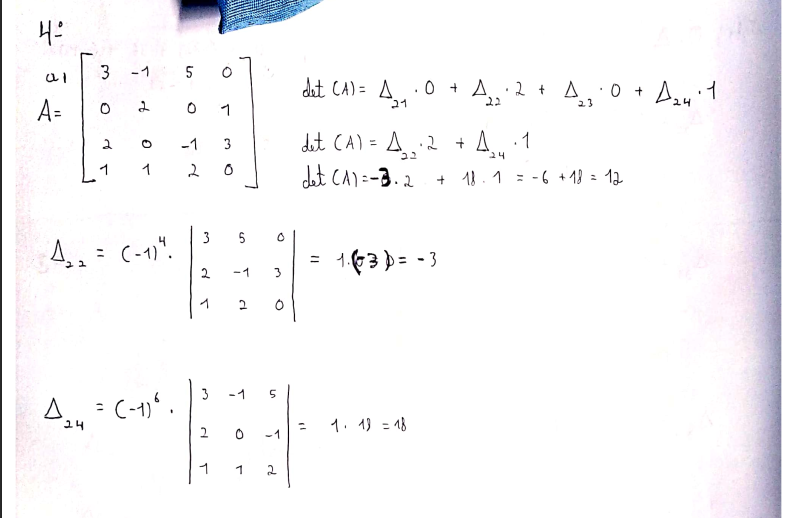 4º
a)
A= [ 3 -1 5 0
0 2 0 1
2 0 -1 3
1 1 2 0 ]
det (A) = Δ₂₁ · 0 + Δ₂₂ · 2 + Δ₂₃ · 0 + Δ₂₄ · 1
det (A) = Δ₂₂ · 2 + Δ₂₄ · 1
det (A) = -3 . 2 + 18 . 1 = -6 + 18 = 12
Δ₂₂ = (-1)⁴ · | 3 5 0
2 -1 3
1 2 0 | = 1.(-3) = -3
Δ₂₄ = (-1)⁶ . | 3 -1 5
2 0 -1
1 1 2 | = 1 . 18 = 18